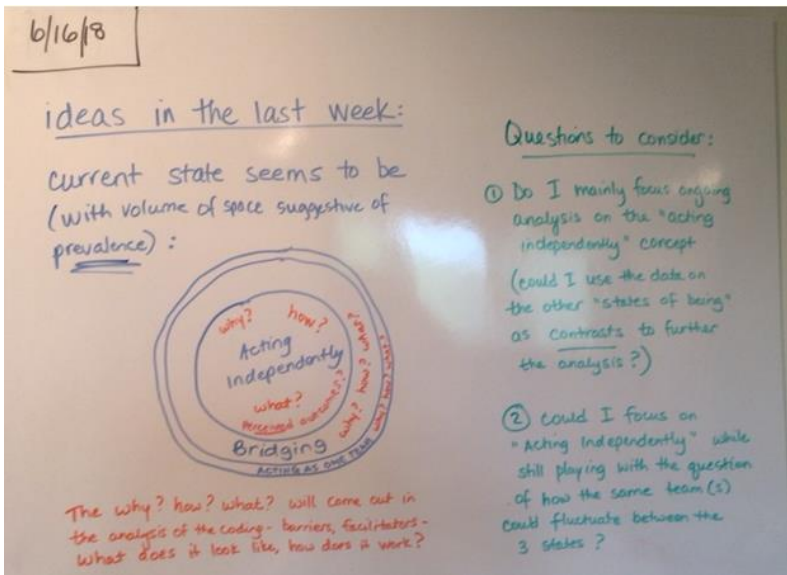 6/16/18
ideas in the last week:
current state seems to be
(with volume of space suggestive of
prevalence) :
why? how?
Acting
Independently
what?
Perceived outcomes?
Bridging
why? how? what?
ACTING AS ONE TEAM
why? how? what?
The why? how? what? will come out in
the analysis of the coding - barriers, facilitators -
What does it look like, how does it work?
Questions to consider:
① Do I mainly focus ongoing
analysis on the "acting
independently" concept
(could I use the data on
the other "states of being"
as contrasts to further
the analysis?)
② could I focus on
"Acting Independently" while
still playing with the question
of how the same team(s)
could fluctuate between the
3 states?